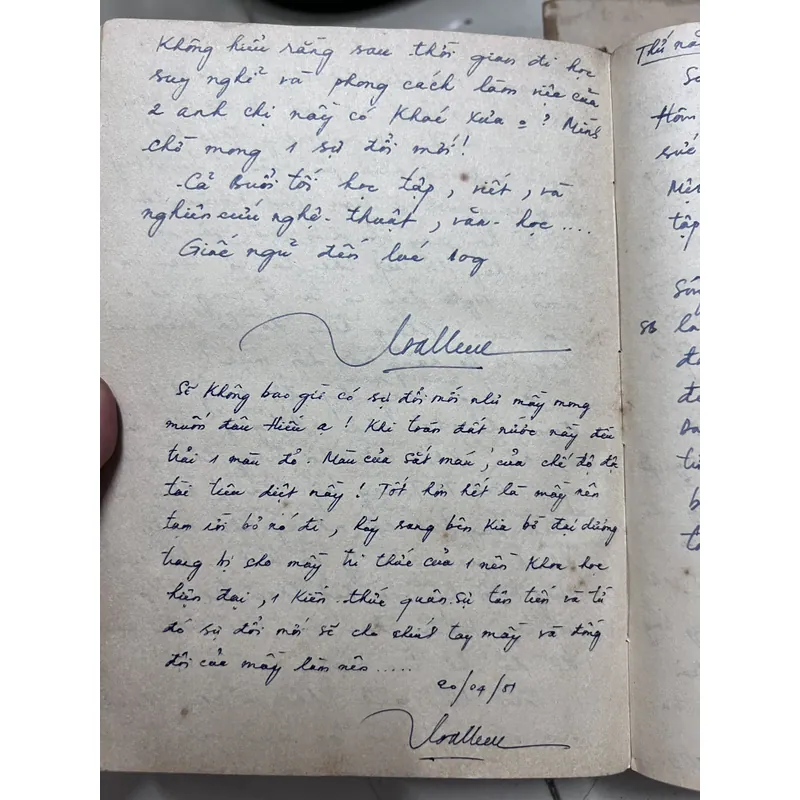 Không hiểu rằng sau thời gian đi học
suy nghĩ và phong cách làm việc của
2 anh chị này có Khác xưa o? Mình
chờ mong 1 sự đổi mới!
Cả Buổi tối học tập, viết, và
nghiên cứu nghệ-thuật, văn-học....
Giấc ngủ đến lúc 10g
Sẽ Không bao giờ có sự đổi mới như mầy mong
muốn đâu Hiếu ạ! Khi toàn đất nước này đều
trải 1 màu đỏ. Màu của sắt máu, của chế độ độc
tài tiêu diệt này! Tốt hơn hết là mầy nên
tạm rời bỏ nó đi, hãy sang bên Kia bờ đại dương
trang bị cho mầy tri thức của 1 nền Khoa học
hiện đại, 1 Kiến-thức quân-sự tân tiến và từ
đó sự đổi mới sẽ do chính tay mầy và đồng
đội của mầy làm nên.....
20/04/81
Thứ nă
Hôm
sức
Mệt
tập
SB là